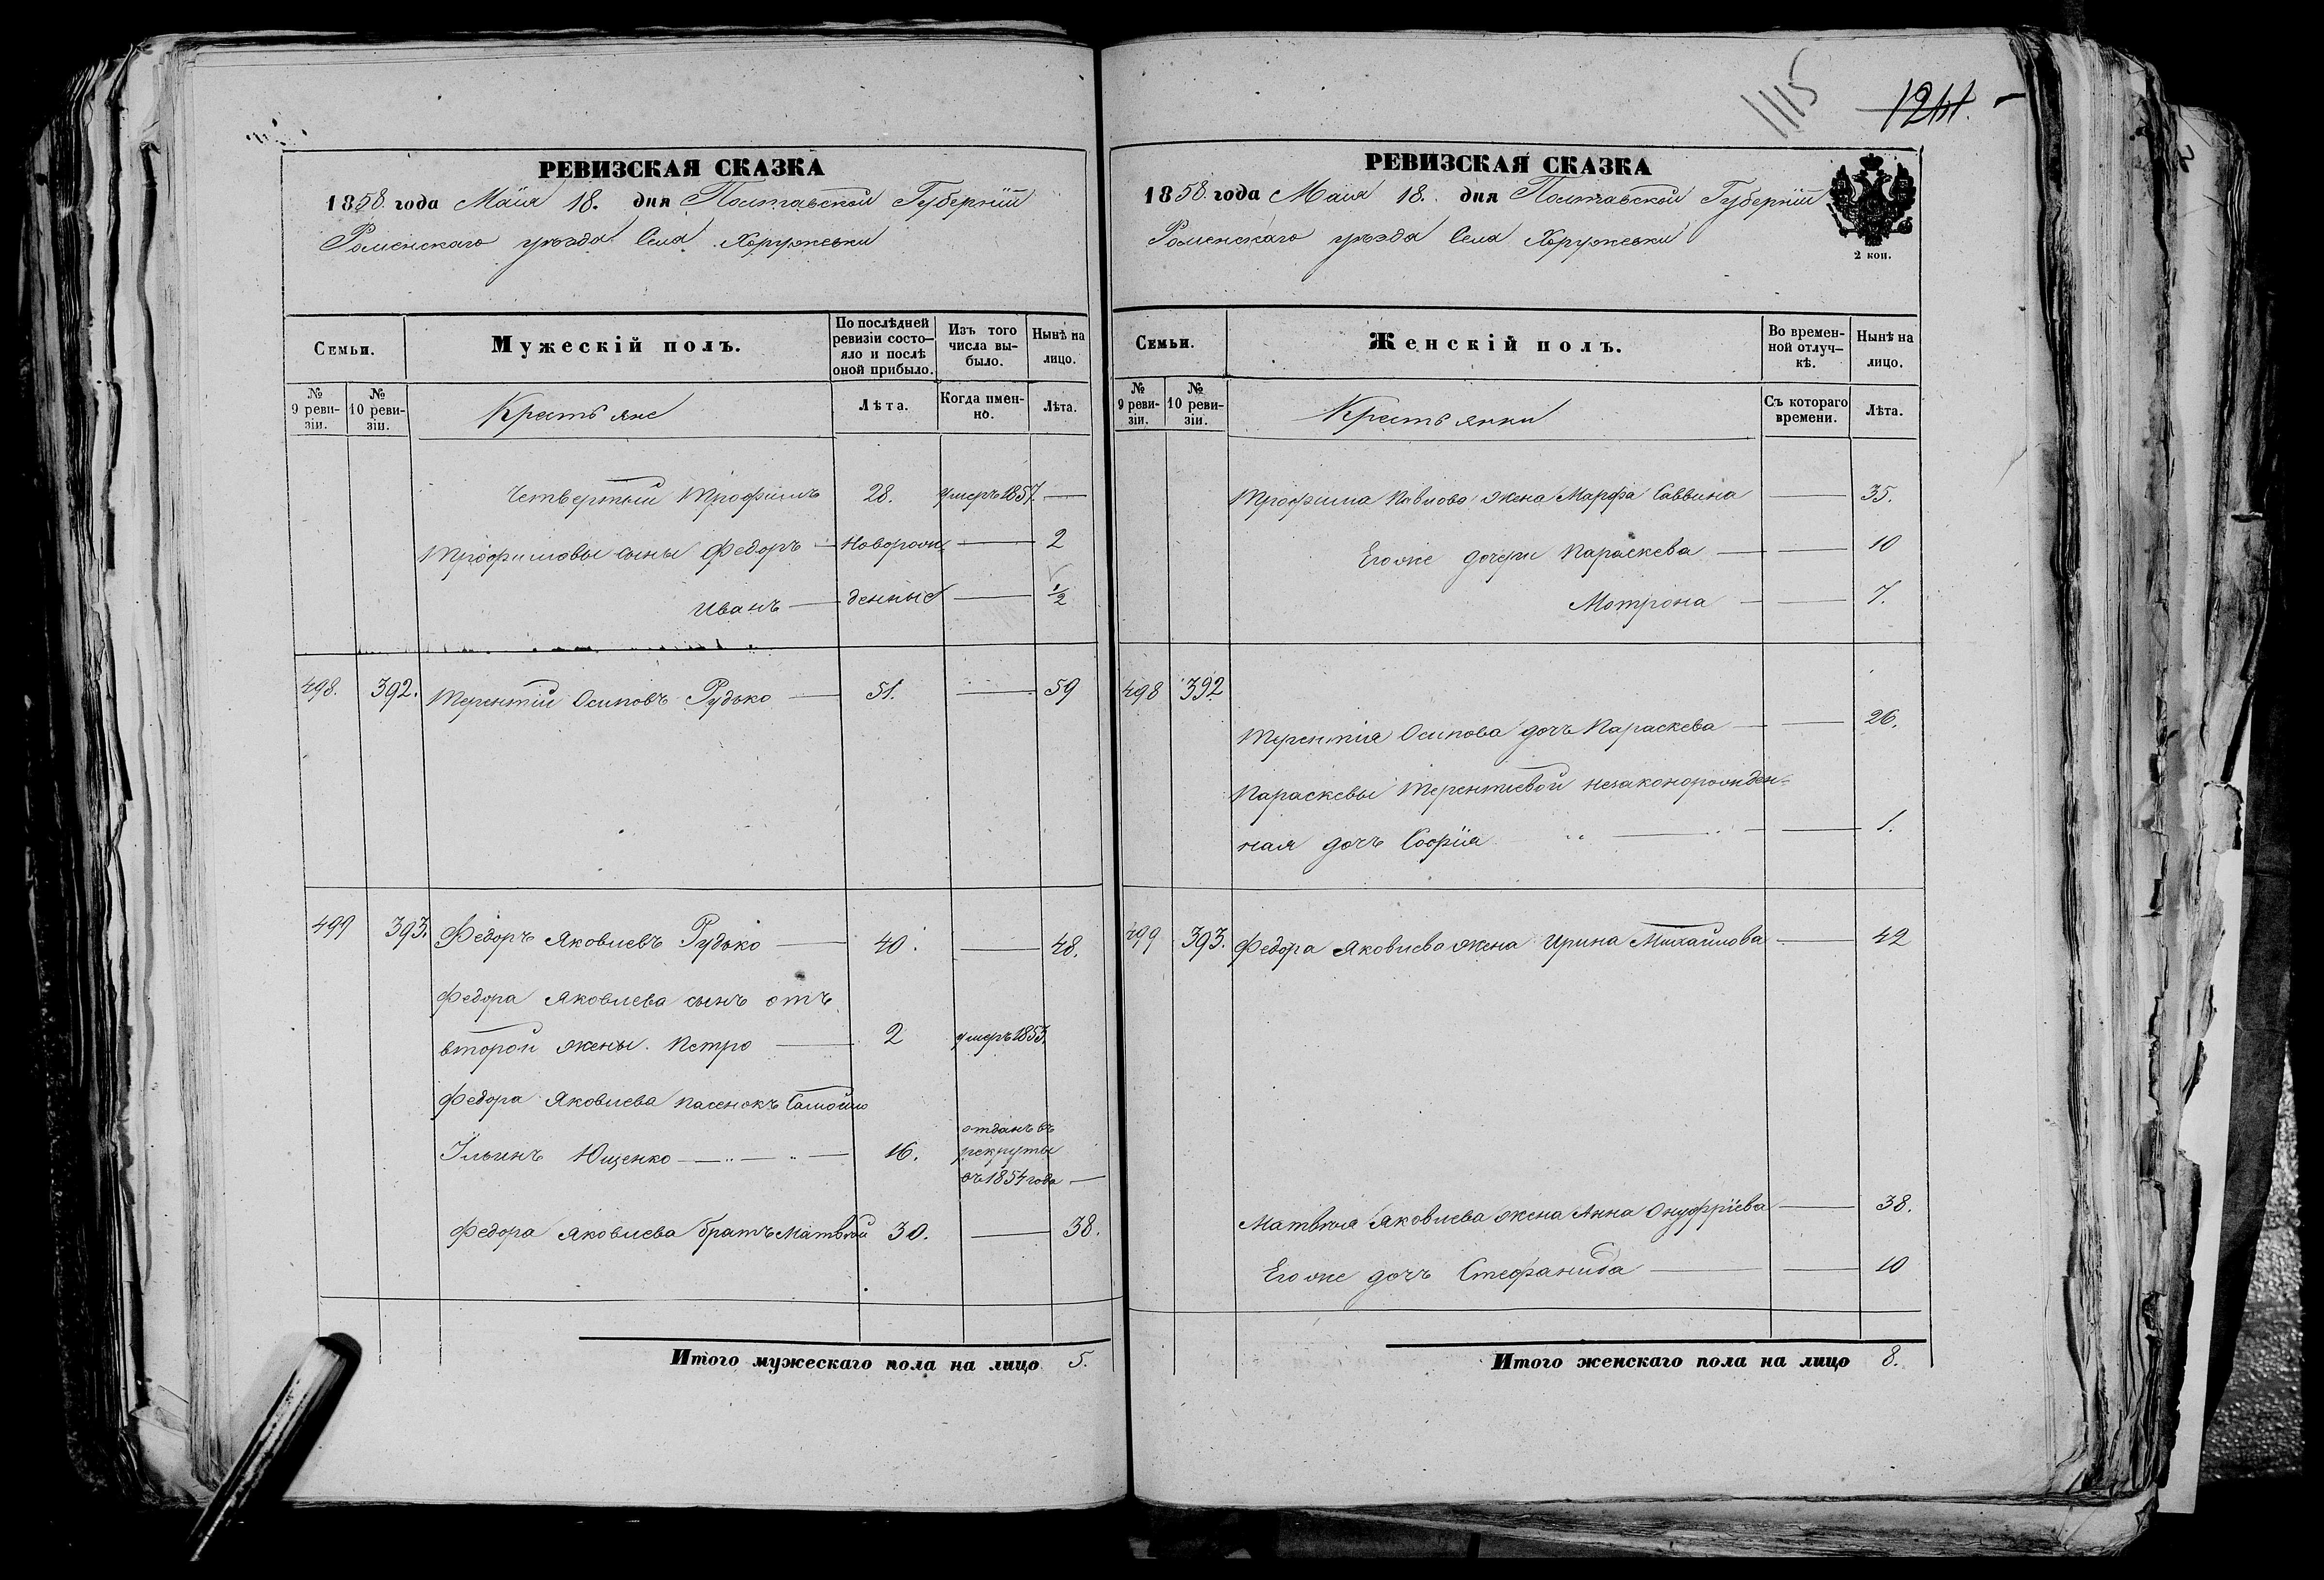 РЕВИЗСКАЯ СКАЗКА
1858. года Маія 18. дня Полтавской Губерніи
Роменскаго уѣзда Села Хоружевки
Семьи.
Мужескій полъ.
По послѣдней ревизіи состо-
яло и послѣ
оной прибыло.
Изъ того
числа вы-
было.
Нынѣ на
лицо.
№
9 реви-
зіи.
№
10 реви-
зіи.
Крестьяне
Лѣта.
Когда имен-
но.
Лѣта.
четвертый Трофимъ 28. умеръ 1857. —
Трофимовы сыны Федоръ — Новорож — 2
Иванъ — денные — 1/2
498. 392. Терентій Осиповъ Рудько — 51. — 59
499 393. Федоръ Яковлевъ Рудько — 40. — 48.
Федора Яковлева сынъ отъ
второй жены. Петро — 2 умеръ 1853.
Федора Яковлева пасенокъ Самойло
Ильинъ Ющенко — 16. отданъ въ
рекруты
въ 1854 года —
Федора Яковлева братъ Матвѣй 30. — 38.
Итого мужескаго пола на лицо 5.
1115
1241.
РЕВИЗСКАЯ СКАЗКА
1858. года Маія 18. дня Полтавской Губерніи
Роменскаго уѣзда Села Хоружевки
2 коп.
Семьи.
Женскій полъ.
Во времен-
ной отлуч-
кѣ.
Нынѣ на
лицо.
№
9 реви-
зіи.
№
10 реви-
зіи.
Крестьянки
Съ котораго
времени.
Лѣта.
Трофима Павлова жена Марфа Саввина — 35.
Его же дочери Параскева — 10
Мотрона — 7.
498 392
Терентія Осипова дочь Параскева — 26.
Параскевы Терентіевой незаконорожден-
ная дочь Софія — 1.
499 393. Федора Яковлева жена Ирина Михайлова — 42
Матвѣя Яковлева жена Анна Онуфріева — 38.
Его же дочь Стефанида — 10
Итого женскаго пола на лицо 8.